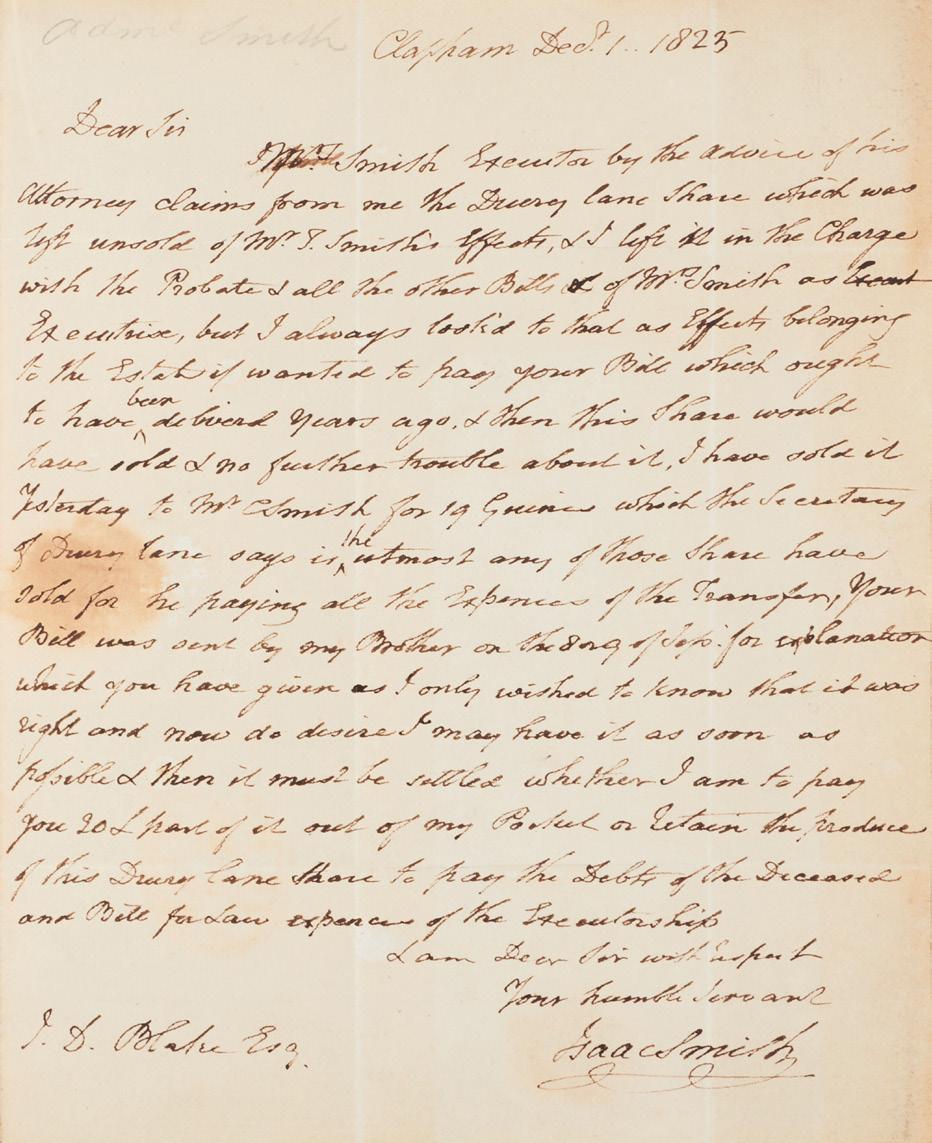 Adml Smith
Clapham Decr. 1.. 1825
Dear Sir
Smith Executor by the advice of his
Attorney claims from me the Drury lane Share which was
left unsold of Mr T. Smith's Effects, & I left it in the Charge
with the Probate & all the other Bills & of Mrs Smith as Execut
Executrise, but I always look'd to that as Effects belonging
to the Estate if wanted to pay your Bill which ought
to have been deliverd Years ago, & then this Share would
have sold & no further trouble about it, I have sold it
Yesterday to Mr CSmith for 19 Guines which the Secretary
of Drury lane says is the utmost any of those Share have
sold for he paying all the Expences of the Transfer, Your
Bill was sent by my Brother on the of Sepr. for explanation
which you have given as I only wished to know that it was
right and now do desire I may have it as soon as
possible & then it must be settled whether I am to pay
you 20£ part of it out of my Pocket or retain the produce
of this Drury lane Share to pay the Debts of the Deceased
and Bill for Law expences of the Executorship
I am Dear Sir with respect
Your humble Servant
J. D. Blake Esq.
Isaac Smith